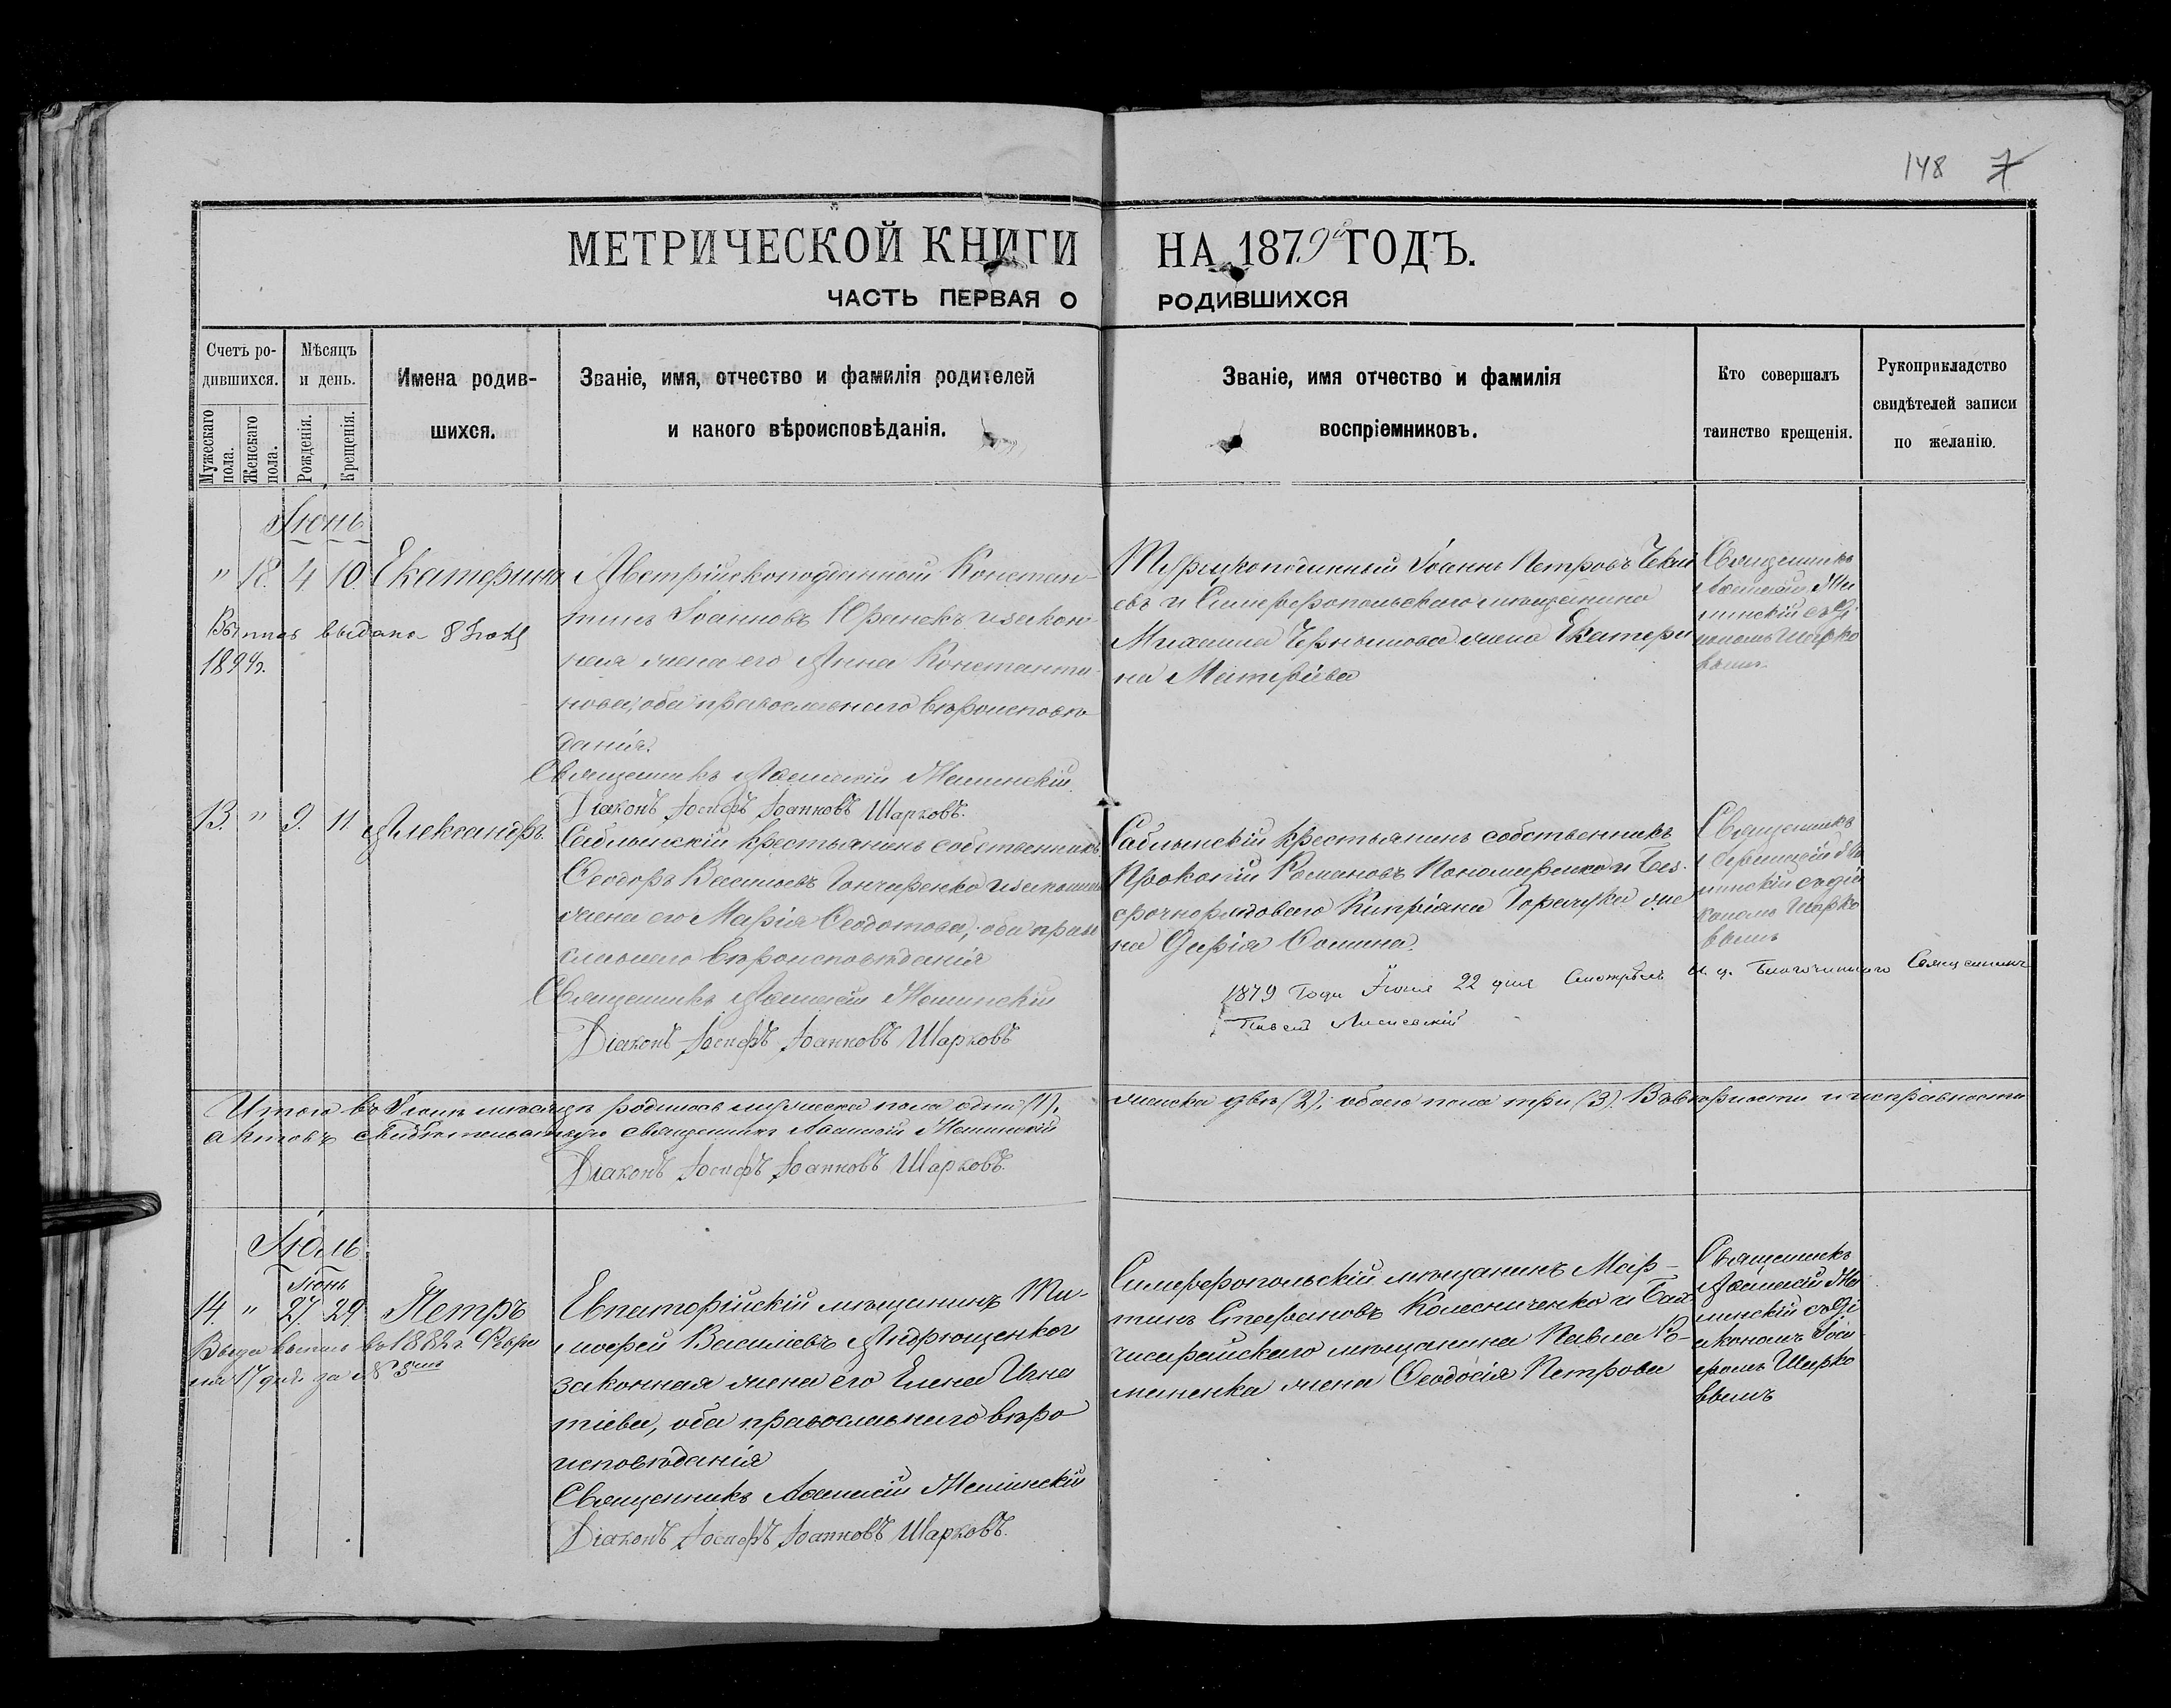 148 7
МЕТРИЧЕСКОЙ КНИГИ НА 1879й ГОДЪ.
ЧАСТЬ ПЕРВАЯ О РОДИВШИХСЯ
Счетъ ро-
дившихся.
Мужескаго пола.
Женскаго пола.
Мѣсяцъ
и день.
Рожденія.
Крещенія.
Имена родив-
шихся.
Званіе, имя, отчество и фамилія родителей
и какого вѣроисповѣданія.
Званіе, имя отчество и фамилія
воспріемниковъ.
Кто совершалъ
таинство крещенія.
Рукоприкладство
свидѣтелей записи
по желанію.
Іюнь
" 18. 4 10. Екатерина
выдана 8
1894г.
Австрійскоподданный Констан-
тинъ Іоанновъ Юранекъ и закон-
ная жена его Анна Константи-
нова, оба православнаго вѣроисповѣ-
данія.
Священникъ
Діаконъ Іосифъ Іоанновъ Шарковъ.
Турецкоподданный Іоаннъ Петровъ
евъ и Симферопольскаго мѣщанина
Михаила жена Екатери
на Матфѣева
Священникъ
съ Ді
кономъ Шарко
вымъ
13. " 9. 11 Александръ
Саблынскій крестьянинъ собственникъ
Ѳеодоръ Васильевъ Гончаренко и законная
жена его Марія Ѳеодотова, оба право
славнаго вѣроисповѣданія
Священникъ
Діаконъ Іосифъ Іоанновъ Шарковъ
Саблынскій крестьянинъ собственникъ
Прокопій Романовъ Пономаренко и Без-
срочнорядоваго Кипріана Горачука же
на Дарія Ѳомина.
Священникъ
съ діа
кономъ Шарко
вымъ
1879 Года Іюня 22 дня Смотрѣлъ И. д. Благочиннаго Священникъ
Павелъ
Итого въ Іюнѣ мѣсяцѣ родилось мужеска пола одинъ (1), женска двѣ (2); обоего пола три (3). Въ вѣрности и исправности
актовъ свидѣтельствую священникъ
Діаконъ Іосифъ Іоанновъ Шарковъ.
Іюль
Іюнь
14. " 27. 29. Петръ
Выда выпись въ 1882 г. Февра
ля 17 дня за №
Евпаторійскій мѣщанинъ Ти-
моѳей Василіевъ Андрющенко и
законная жена его Елена Игна
тіева, оба православнаго вѣро
исповѣданія
Священникъ
Діаконъ Іосифъ Іоанновъ Шарковъ.
Симферопольскій мѣщанинъ Мар-
тинъ Стефановъ Колесниченко и Бах
чисарайскаго мѣщанина Павла Ро-
маненка жена Ѳеодосія Петрова
Священникъ
съ Ді
акономъ Іоси
фомъ Шарко
вымъ